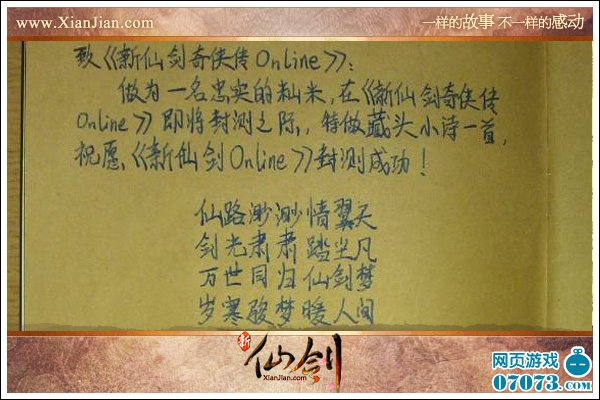 www.XianJian.com
一样的故事 不一样的感动
致《新仙剑奇侠传Online》:
做为一名忠实的籼米,在《新仙剑奇侠传
Online》即将封测之际,特做藏头小诗一首,
祝愿《新仙剑Online》封测成功!
仙路渺渺情翼天
剑光肃肃踏尘凡
万世同归仙剑梦
岁寒酸梦暖人间
新
仙剑
XianJian.com
网页游戏
07073.com